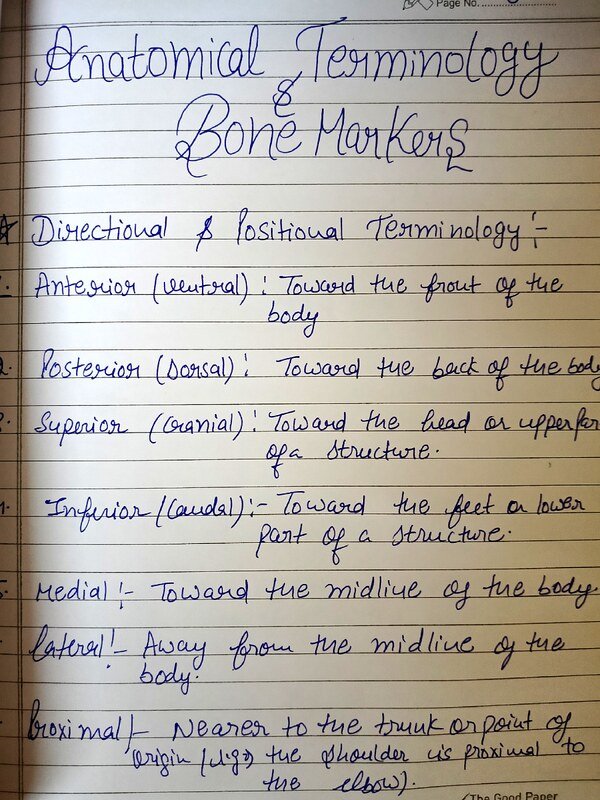 Page No.
Anatomical Terminology
&
Bone Markers
Directional & Positional Terminology :-
Anterior (Ventral) : Toward the front of the
body
2. Posterior (Dorsal) : Toward the back of the body
3. Superior (Cranial) : Toward the head or upper par
of a structure.
Inferior (Caudal) :- Toward the feet or lower
part of a structure.
5. Medial :- Toward the midline of the body.
Lateral :- Away from the midline of the
body.
Proximal :- Nearer to the trunk or point of
origin ( the shoulder is proximal to
the elbow).
The Good Paper